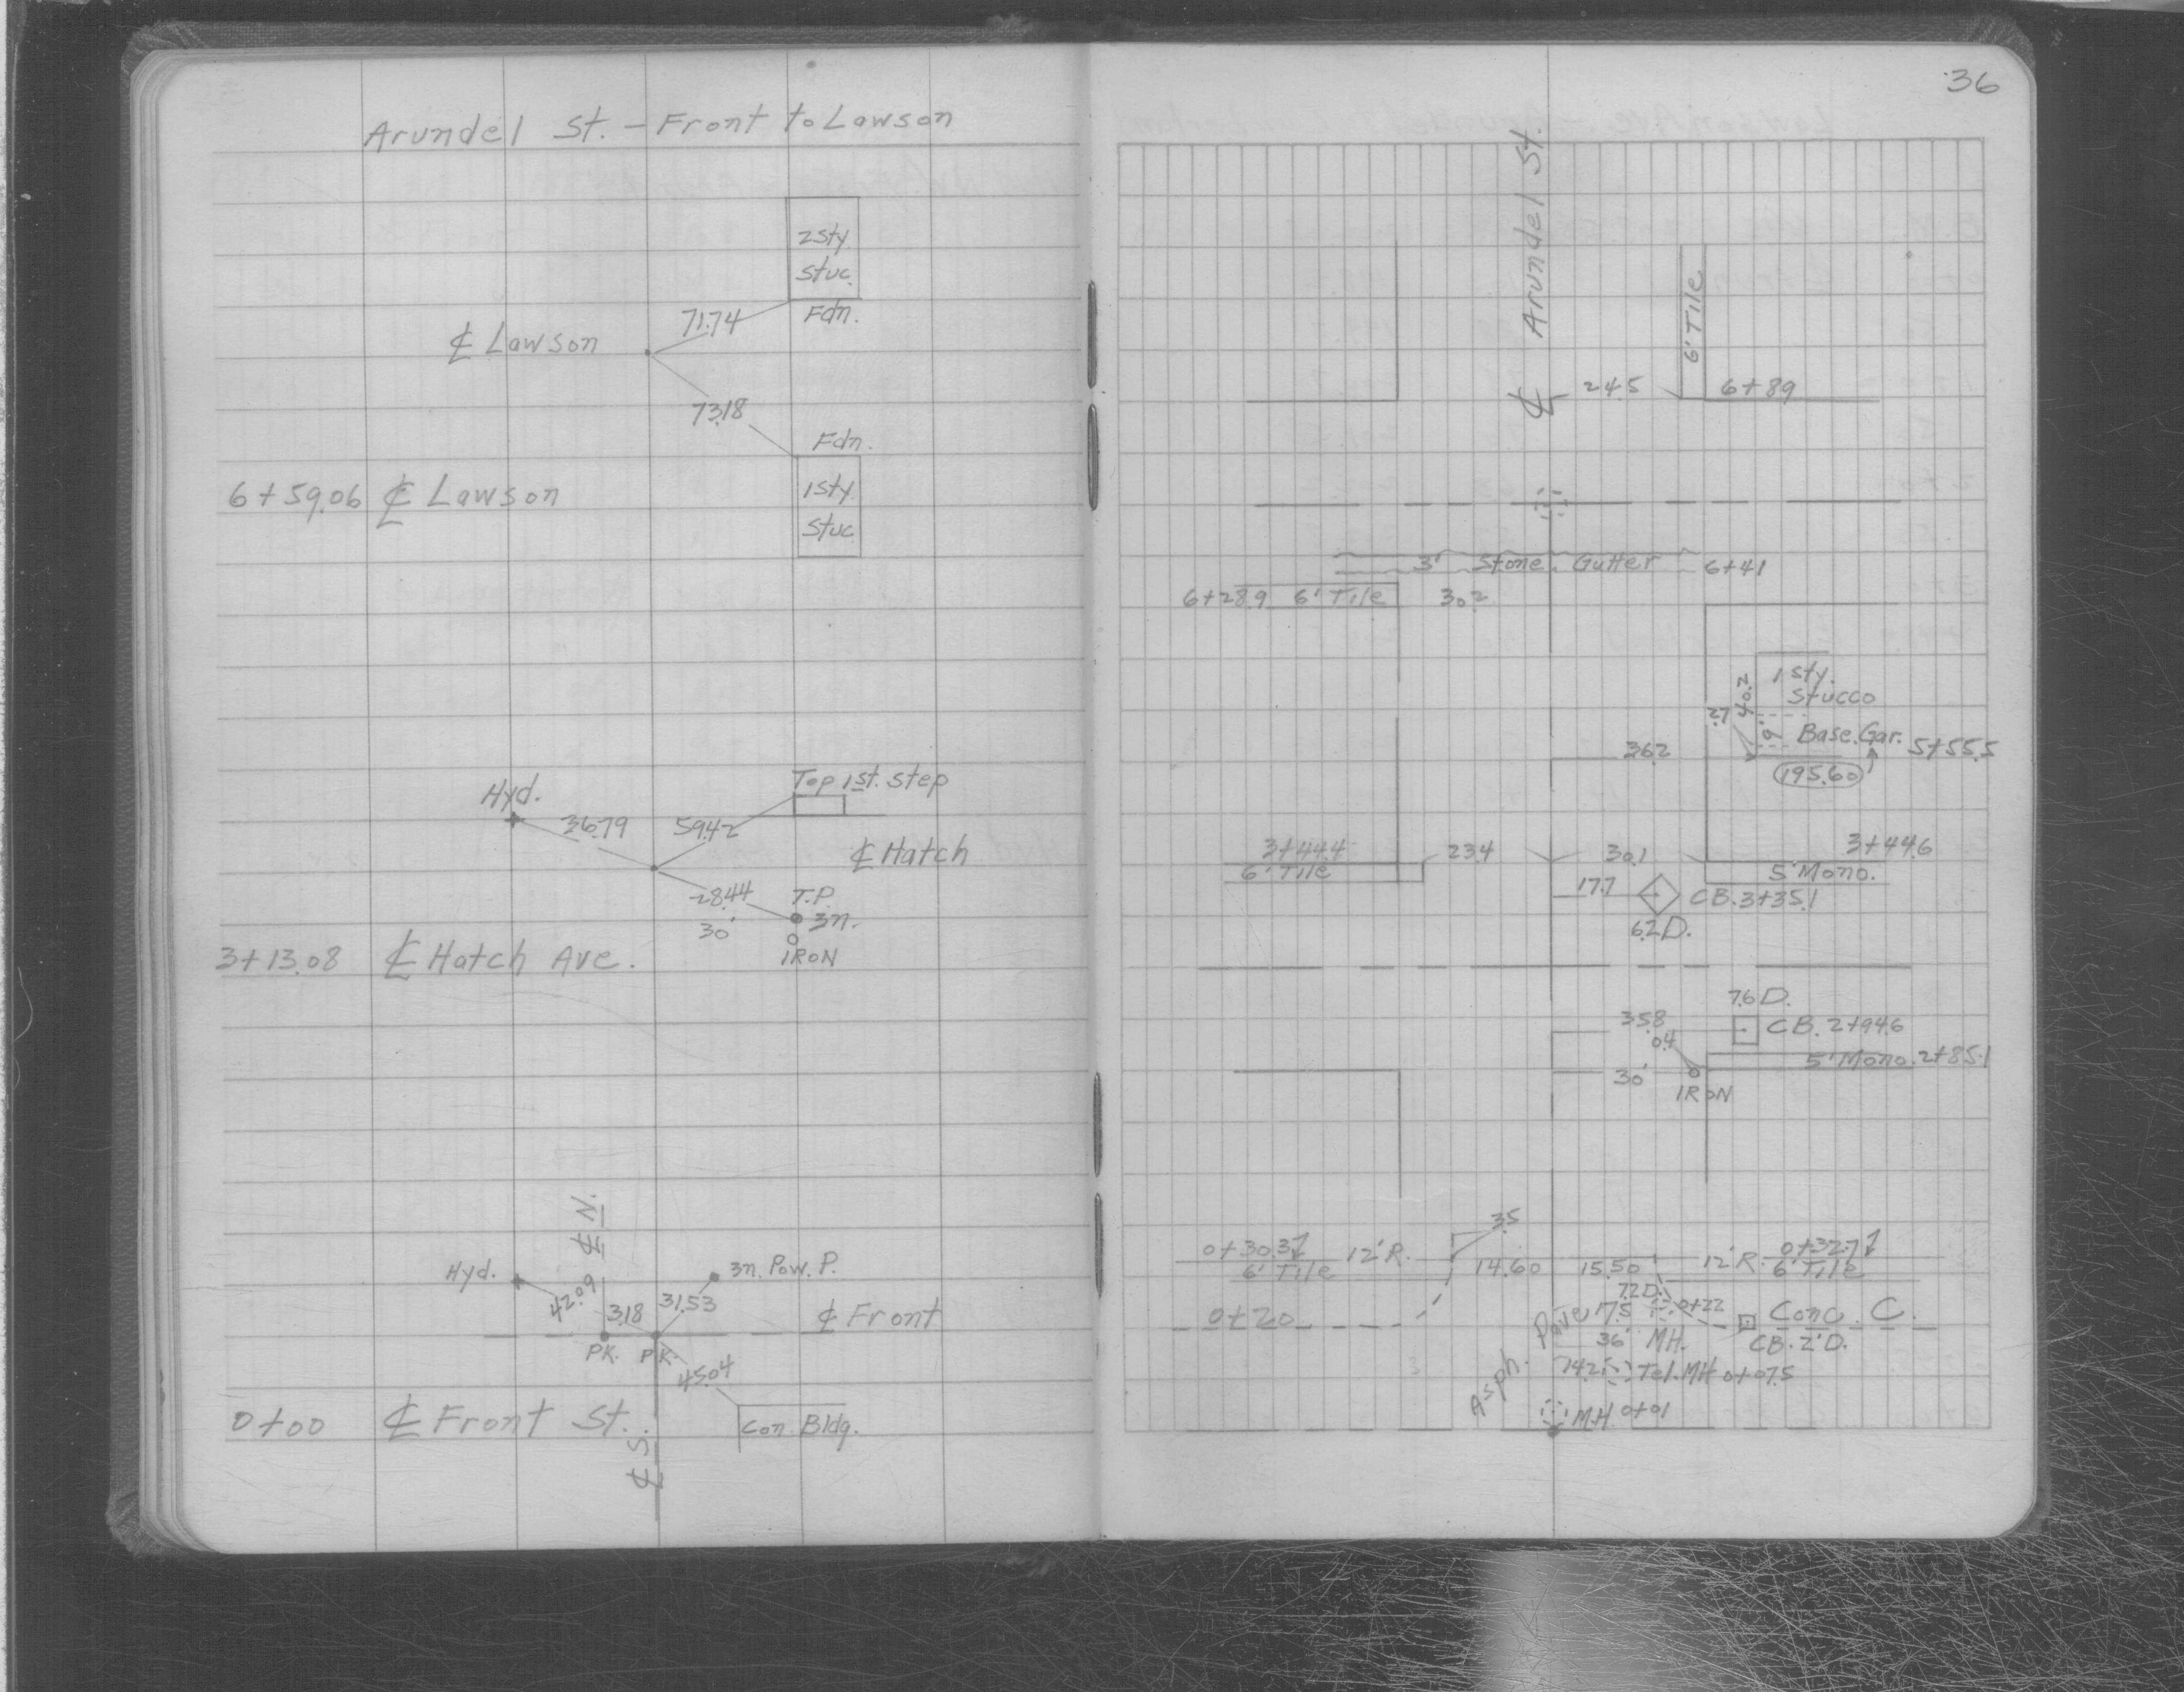 Arundel St. - Front to Lawson
2sty
Stuc.
Fdn.
71.74
℄ Lawson
73.18
Fdn.
1sty
Stuc.
6+59.06 ℄ Lawson
Top 1st. Step
Hyd.
36.79
59.42
℄ Hatch
28.44
T.P.
3n.
30'
IRON
3+13.08 ℄ Hatch Ave.
℄ N.
Hyd.
3n. Pow. P.
42.09
3.18
31.53
℄ Front
PK.
PK.
45.04
0+00 ℄ Front St.
Con. Bldg.
℄ S.
36
℄ Arundel St.
6' Tile
24.5
6+89
3' Stone Gutter 6+41
6+28.9 6' Tile
30.2
1 sty.
Stucco
40.2
2.7
9'
Base. Gar.
5+55.5
36.2
195.60
3+44.4
6' Tile
23.4
30.1
3+44.6
5' Mono.
17.7
CB. 3+35.1
6.2 D.
7.6 D.
35.8
CB. 2+94.6
0.4
5' Mono. 2+85.1
30'
IRON
3.5
0+30.3
6' Tile
12' R.
14.60
15.50
12' R.
0+32.7
6' Tile
7.2 D.
0+20
17.5
0+22
Conc. C.
36'
MH.
CB. 2' D.
Asph. Pave
Tel. MH 0+07.5
MH 0+01